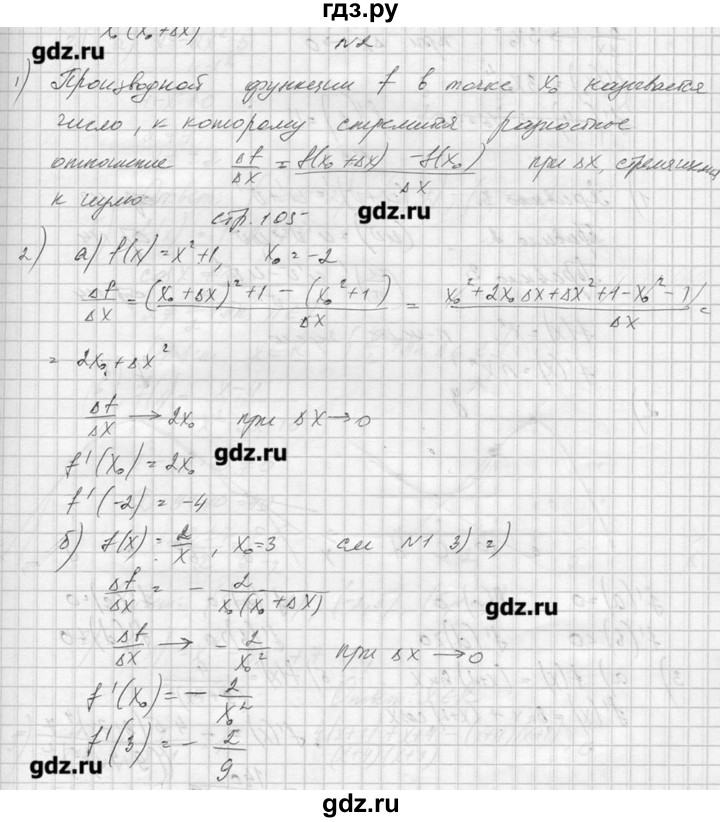 гдз.ру
x₀(x₀+Δx)
gdz.ru
N2
1) Производной функции f в точке x₀ называется
число, к которому стремится разностное
отношение Δf/Δx = (f(x₀+Δx) - f(x₀))/Δx при Δx, стремящимся
к нулю
gdz.ru
стр. 105
2) а) f(x) = x²+1, x₀ = -2
Δf/Δx = ((x₀+Δx)²+1 - (x₀²+1))/Δx = (x₀²+2x₀Δx+Δx²+1-x₀²-1)/Δx =
= 2x₀+Δx²
Δf/Δx → 2x₀ при Δx→0
gdz.ru
f'(x₀) = 2x₀
f'(-2) = -4
б) f(x) = 2/x, x₀=3 см N1 3) г)
Δf/Δx = - 2/(x₀(x₀+Δx))
gdz.ru
Δf/Δx → - 2/x₀² при Δx → 0
f'(x₀) = - 2/x₀²
f'(3) = - 2/9
gdz.ru
gdz.ru
gdz.ru